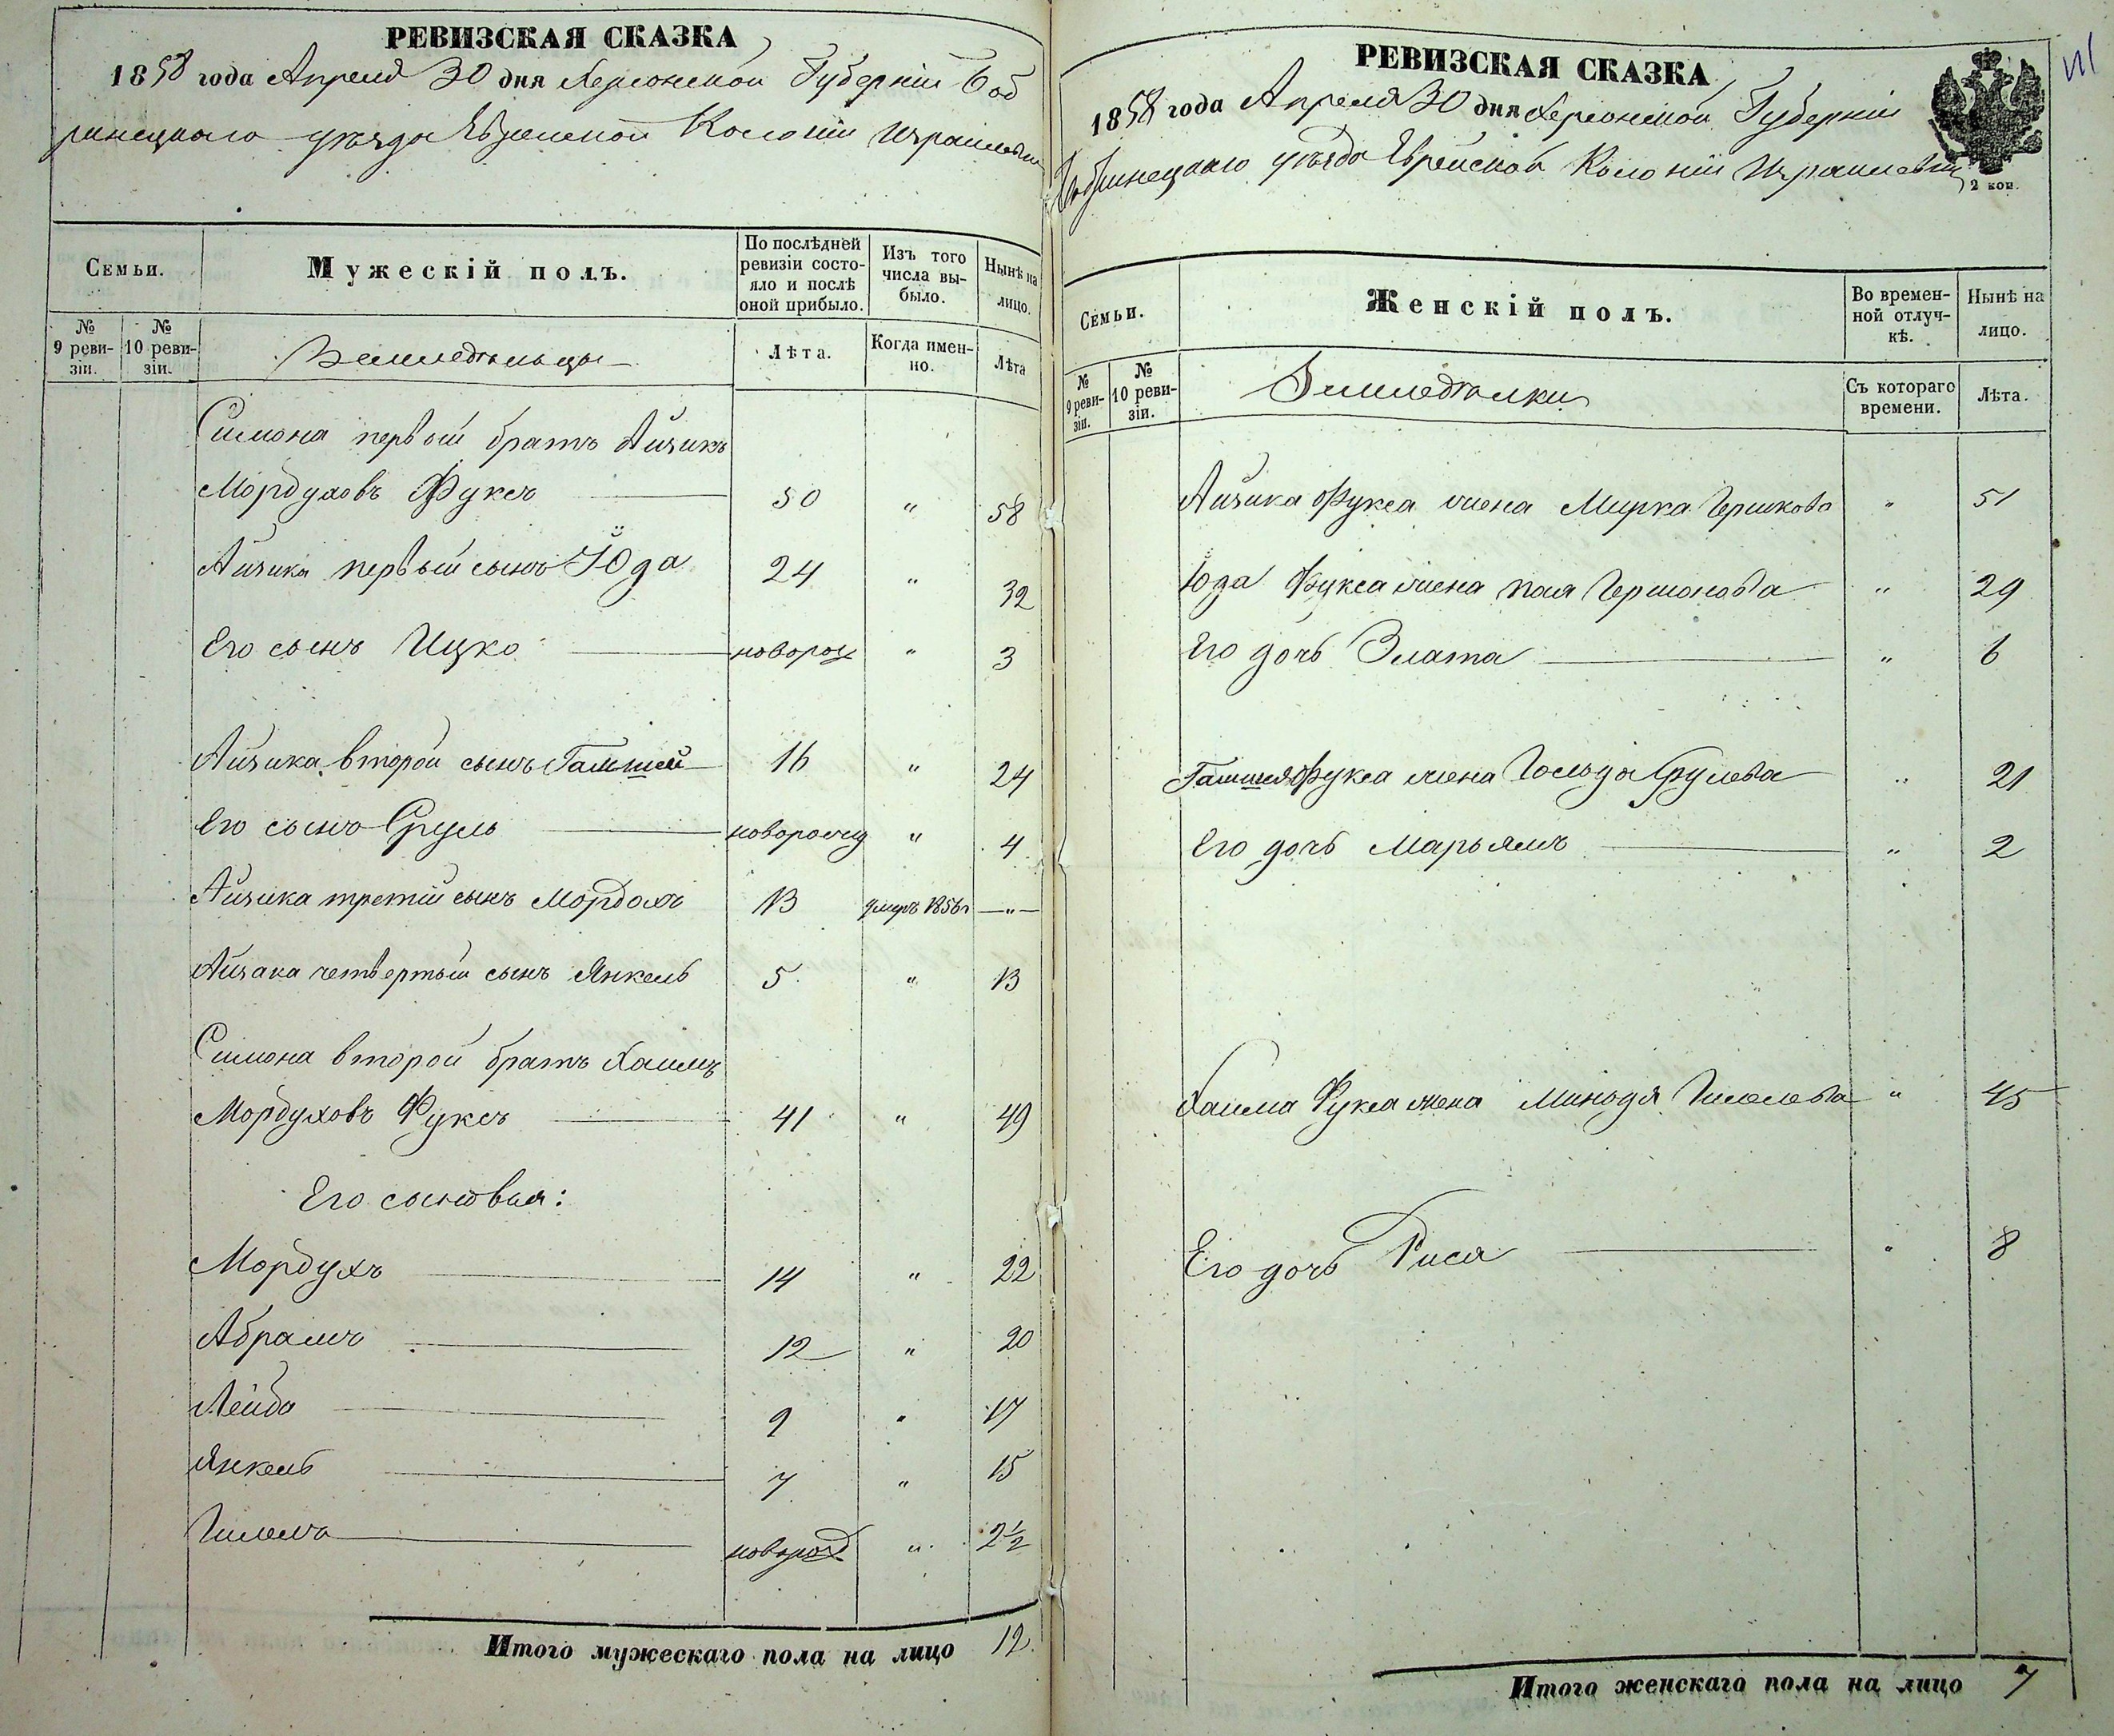 РЕВИЗСКАЯ СКАЗКА
1858 года Апреля 30 дня Херсонской Губерніи Боб
ринецкаго уѣзда Еврейской Колоніи Израилевки
Семьи.
Мужескій полъ.
По послѣдней ревизіи состо-
яло и послѣ оной прибыло.
Изъ того числа вы-
было.
Нынѣ на лицо.
№ 9 реви-
зіи.
№ 10 реви-
зіи.
Земледѣльцы
Лѣта.
Когда имен-
но.
Лѣта
Симона первой братъ Айзикъ
Мордуховъ Фуксъ 50 " 58
Айзика первый сынъ Юда 24 " 32
Его сынъ Ицко новорож " 3
Айзика второй сынъ Гамшей 16 " 24
Его сынъ Сруль новорожд " 4
Айзика третій сынъ Мордохъ 13 умеръ 1856г —"—
Айзака четвертый сынъ Янкель 5 " 13
Симона второй братъ Хаимъ
Мордуховъ Фуксъ 41 " 49
Его сыновья:
Мордухъ 14 " 22
Абрамъ 12 " 20
Лейба 9 " 17
Янкель 7 " 15
новорожд " 2½
Итого мужескаго пола на лицо 12
РЕВИЗСКАЯ СКАЗКА
1858 года Апреля 30 дня Херсонской Губерніи
Бобринецкаго уѣзда Еврейской Колоніи Израилевки
2 коп.
Семьи.
Женскій полъ.
Во времен-
ной отлуч-
кѣ.
Нынѣ на лицо.
№ 9 реви-
зіи.
№ 10 реви-
зіи.
Земледѣлки
Съ котораго времени.
Лѣта.
Айзика Фукса жена Мирка Гершкова " 51
Юда Фукса жена Гершонова " 29
Его дочь Злата " 6
Гамшея Фукса жена Гольда Срулева " 21
Его дочь Марьямъ " 2
Хаима Фукса жена " 45
Его дочь Рися " 8
Итого женскаго пола на лицо 7